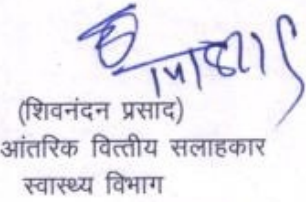 (शिवनंदन प्रसाद)
आंतरिक वित्तीय सलाहकार
स्वास्थ्य विभाग